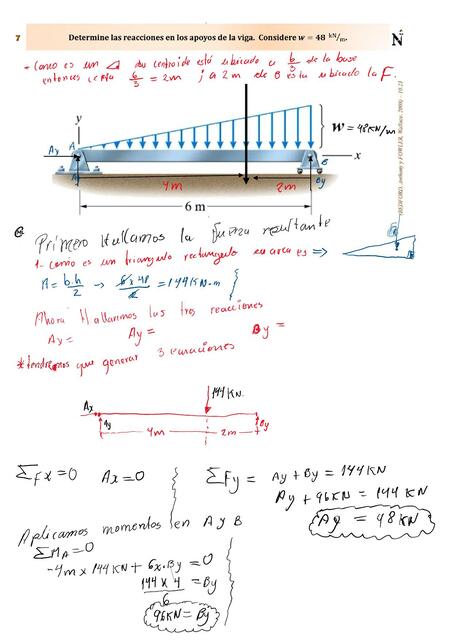 7 Determine las reacciones en los apoyos de la viga. Considere w = 48 kN/m. N
- como es un ⊿ su centroide está ubicado a 6/3 de la base
entonces 6/3 = 2m ; a 2m de B esta ubicado la F.
y
Ay A
W = 48KN/m
x
B
By
4m 2m
6 m
Primero Hallamos la fuerza resultante
1- como es un triangulo rectangulo su area es ⇒
A = b.h/2 → 6 x 48/2 = 144 KN.m
Ahora Hallaremos las tres reacciones
Ay = Ay = By =
*tendremos que generar 3 ecuaciones
144 KN.
Ax
Ay By
4m 2m
ΣFx = 0 Ax = 0 ΣFy = Ay + By = 144 KN
Ay + 96KN = 144 KN
Ay = 48 KN
Aplicamos momentos en A y B
ΣMA = 0
-4m x 144 KN + 6x.By = 0
144 x 4/6 = By
96KN = By